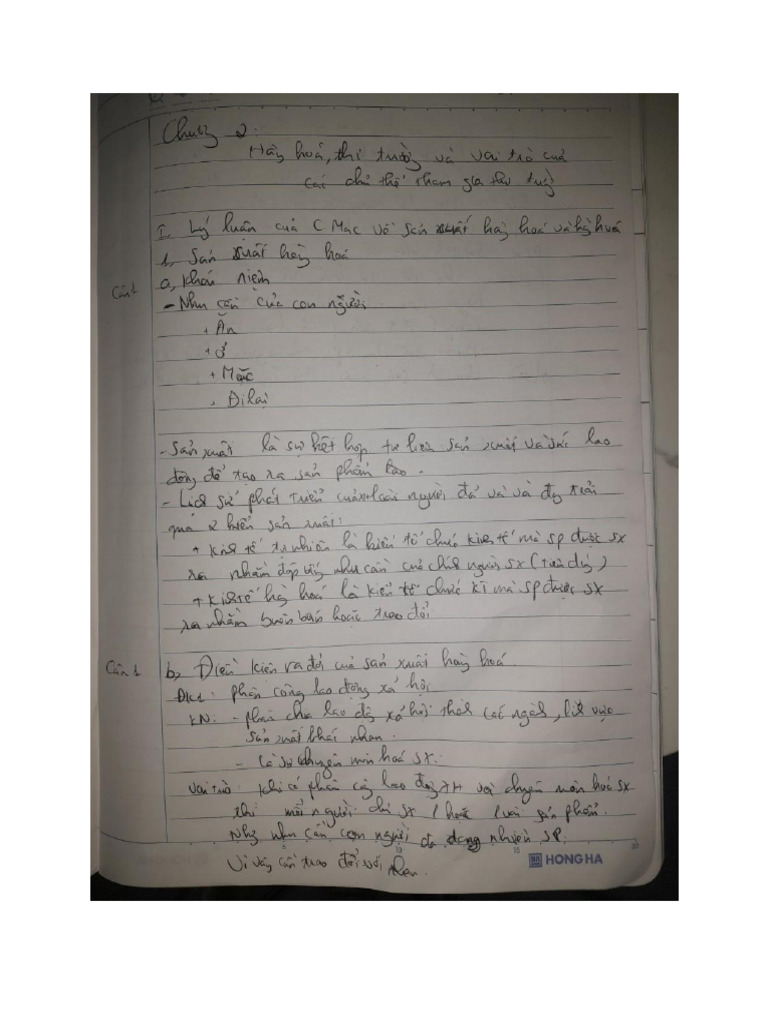 Chương 2:
Hàng hoá, thị trường và vai trò của
các chủ thể tham gia thị trường
I. Lý luận của C Mac về sản xuất hàng hoá và hàng hoá
1, Sản xuất hàng hoá
Câu 1
a, Khái niệm
- Nhu cần của con người
+ Ăn
+ Ở
+ Mặc
+ Đi lại
- Sản xuất là sự kết hợp tư liệu sản xuất và sức lao
động để tạo ra sản phẩm
- Lịch sử phát triển của loài người đã và đang trải
qua 2 kiểu sản xuất:
+ Kinh tế tự nhiên là kiểu tổ chức kinh tế mà sp được sx
ra nhằm đáp ứng nhu cần của chính người sx (tiêu dùng)
+ Kinh tế hàng hoá là kiểu tổ chức KT mà sp được sx
ra nhằm buôn bán hoặc trao đổi
Câu 1
b, Điều kiện ra đời của sản xuất hàng hoá.
ĐK1: phân công lao động xã hội
KN: - phân chia lao động xã hội thành các ngành, lĩnh vực
sản xuất khác nhau.
- Là sự chuyên môn hoá sx.
Vai trò: Khi có phân công lao động XH với chuyên môn hoá sx
thì mỗi người chỉ sx 1 hoặc 1 vài sản phẩm.
Nhưng nhu cần con người đa dạng nhiều SP.
Vì vậy cần trao đổi với nhau.
HONG HA